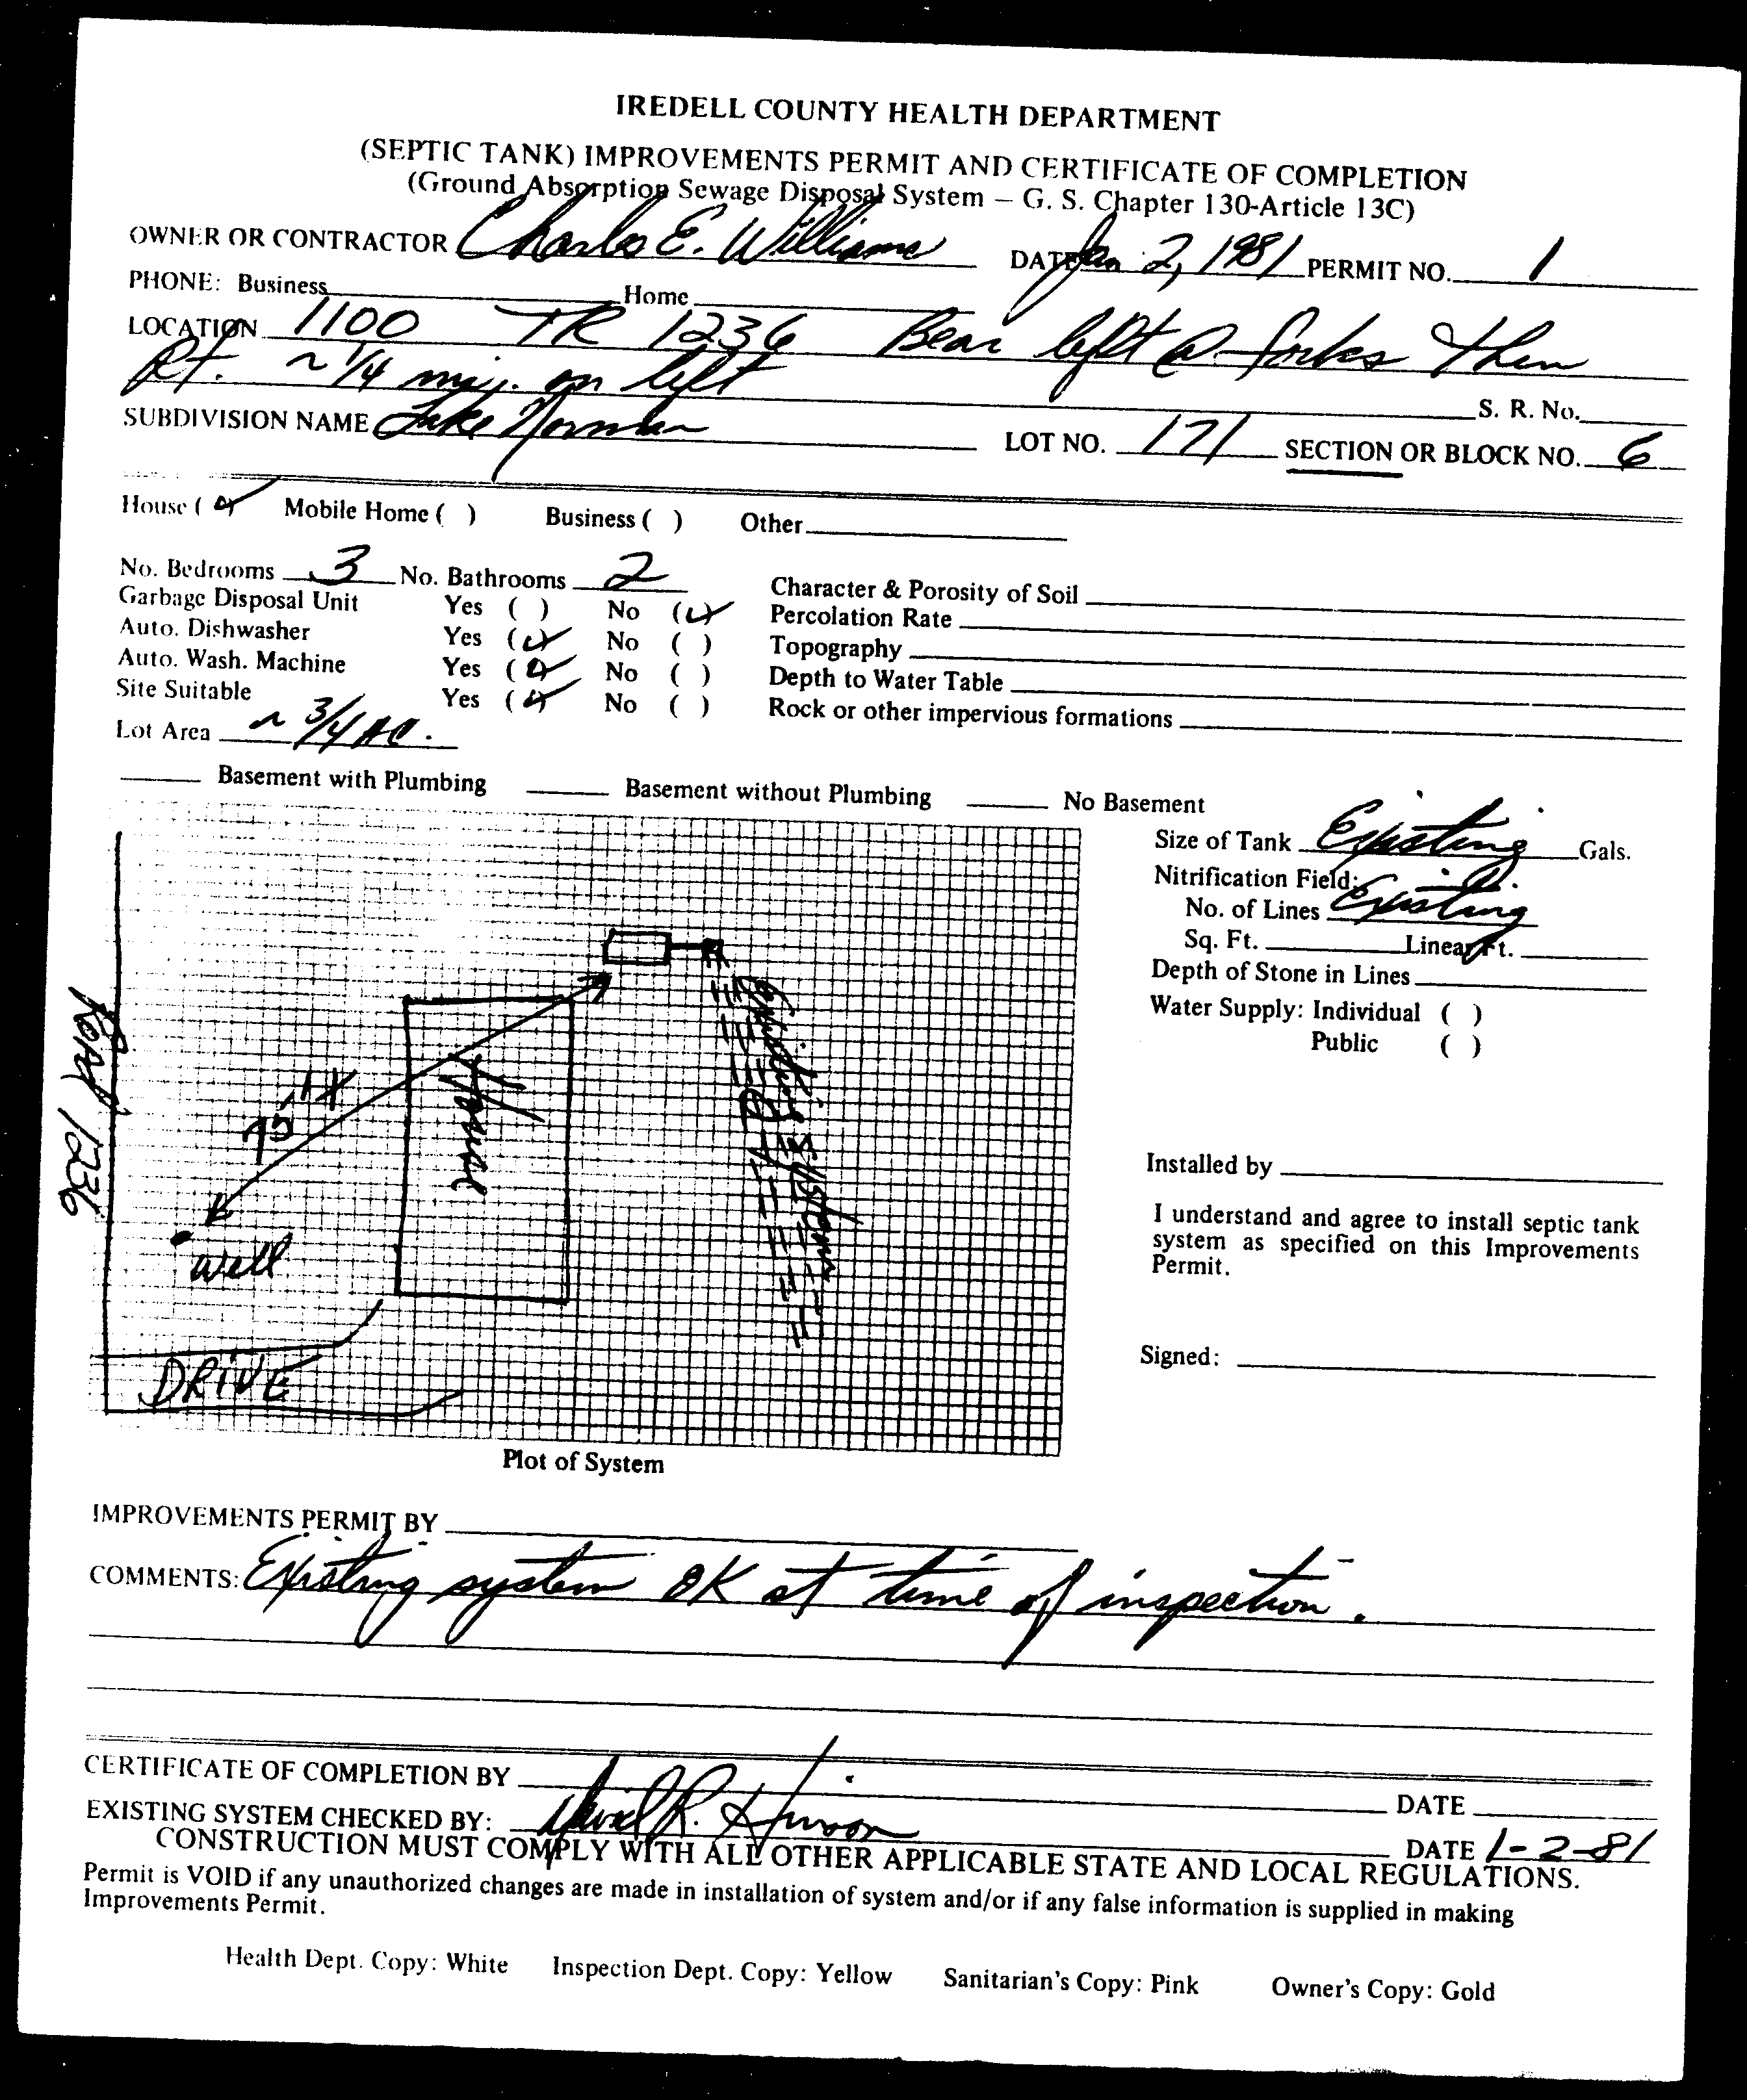 IREDELL COUNTY HEALTH DEPARTMENT
(SEPTIC TANK) IMPROVEMENTS PERMIT AND CERTIFICATE OF COMPLETION
(Ground Absorption Sewage Disposal System – G. S. Chapter 130-Article 13C)
OWNER OR CONTRACTOR Charles E. Williams DATE Jan 2, 1981 PERMIT NO. 1
PHONE: Business Home
LOCATION 1100 TR 1236 Bear left @ forks then
Rt. ~ 1/4 mi. on left
S. R. No.
SUBDIVISION NAME Lake Norman LOT NO. 171 SECTION OR BLOCK NO. 6
House ( ) Mobile Home ( ) Business ( ) Other
No. Bedrooms 3 No. Bathrooms 2 Character & Porosity of Soil
Garbage Disposal Unit Yes ( ) No (✓) Percolation Rate
Auto. Dishwasher Yes (✓) No ( ) Topography
Auto. Wash. Machine Yes (✓) No ( ) Depth to Water Table
Site Suitable Yes (✓) No ( ) Rock or other impervious formations
Lot Area ~ 3/4 AC.
Basement with Plumbing Basement without Plumbing No Basement
Size of Tank Existing Gals.
Nitrification Field:
No. of Lines Existing
Sq. Ft. Linear Ft.
Depth of Stone in Lines
Water Supply: Individual ( )
Public ( )
Road 1236
75'
House
Existing System
well
DRIVE
Installed by
I understand and agree to install septic tank
system as specified on this Improvements
Permit.
Signed:
Plot of System
IMPROVEMENTS PERMIT BY
COMMENTS: Existing system OK at time of inspection.
CERTIFICATE OF COMPLETION BY DATE
EXISTING SYSTEM CHECKED BY: David R. Hinson DATE 1-2-81
CONSTRUCTION MUST COMPLY WITH ALL OTHER APPLICABLE STATE AND LOCAL REGULATIONS.
Permit is VOID if any unauthorized changes are made in installation of system and/or if any false information is supplied in making
Improvements Permit.
Health Dept. Copy: White Inspection Dept. Copy: Yellow Sanitarian's Copy: Pink Owner's Copy: Gold